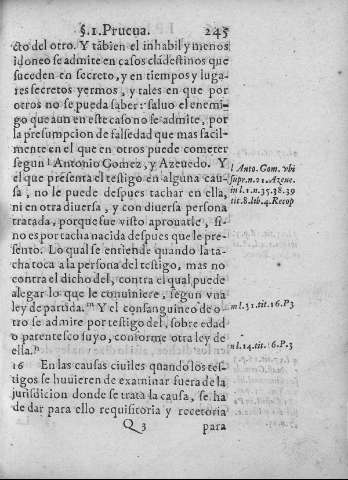 §. 1. Prueua. 245
cto del otro. Y tābien el inhabil y menos
idoneo se admite en casos clādestinos que
suceden en secreto, y en tiempos y luga-
res secretos yermos, y tales en que por
otros no se pueda saber: saluo el enemi-
go que aun en este caso no se admite, por
la presumpcion de falsedad que mas facil-
mente en el que en otros puede cometer
segun l Antonio Gomez, y Azeuedo. Y
el que presenta el testigo en alguna cau-
sa, no le puede despues tachar en ella,
ni en otra diuersa, y con diuersa persona
tratada, porque fue visto aprouarle, si-
no es por tacha nacida despues que le pre-
sentò. Lo qual se entiende quando la ta-
cha toca a la persona del testigo, mas no
contra el dicho del, contra el qual puede
alegar lo que le conuiniere, segun vna
ley de partida.m Y el consanguineo de o-
tro se admite por testigo del, sobre edad
o parentesco suyo, conforme otra ley de
ella.n
16 En las causas ciuiles quando los tes-
tigos se huuieren de examinar fuera de la
jurisdicion donde se trata la causa, se ha
de dar para ello requisitoria y recetoria
Q 3 para
l Anto. Gom. vbi
supr. n. 21. Azeue.
in l. 1. n. 35. 38. 39
tit. 8. lib. 4. Recop
m l. 31. tit. 16. P. 3
n l. 14. tit. 16. P. 3